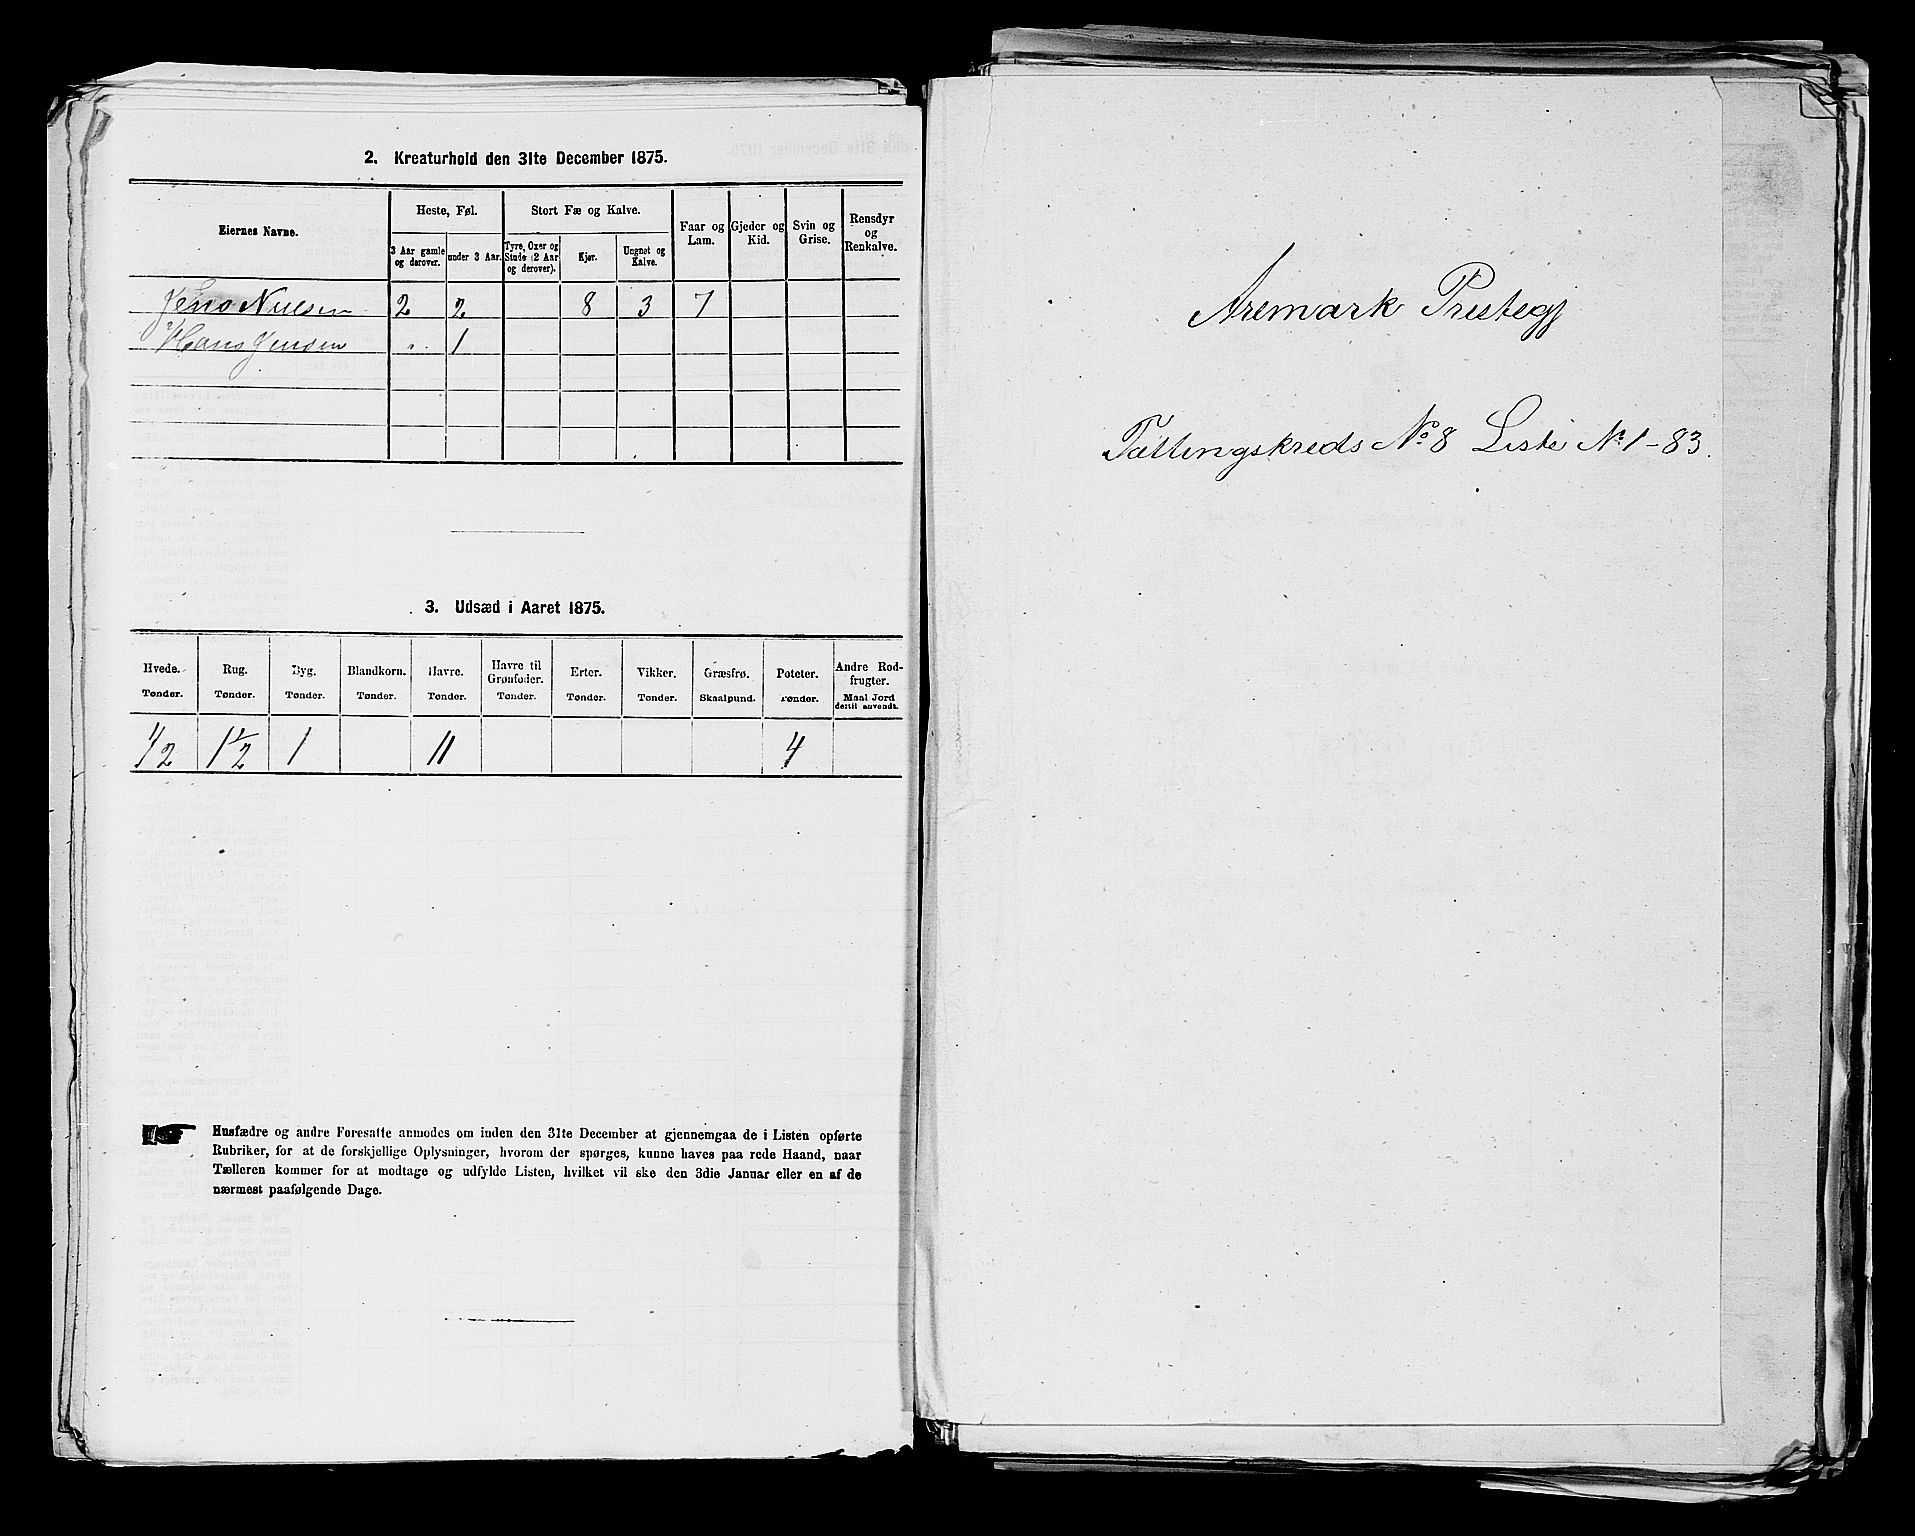 2. Kreaturhold den 31te December 1875.
Eiernes Navne.
Heste, Føl.
Stort Fæ og Kalve.
Faar og Lam.
Gjeder og Kid.
Svin og Grise.
Rensdyr og Renkalve.
3 Aar gamle og derover.
under 3 Aar.
Tyre, Oxer og Stude (2 Aar og derover).
Kjør.
Ungnøt og Kalve.
Jens Nielsen 2 2 8 3 7
Hans Jensen " 1
3. Udsæd i Aaret 1875.
Hvede. Rug. Byg. Blandkorn. Havre. Havre til Grønfoder. Erter. Vikker. Græsfrø. Poteter. Andre Rodfrugter.
Tønder. Tønder. Tønder. Tønder. Tønder. Tønder. Tønder. Tønder. Skaalpund. Tønder. Maal Jord dertil anvendt.
1/2 1 1/2 1 11 4
Husfædre og andre Foresatte anmodes om inden den 31te December at gjennemgaa de i Listen opførte
Rubriker, for at de forskjellige Oplysninger, hvorom der spørges, kunne haves paa rede Haand, naar
Tælleren kommer for at modtage og udfylde Listen, hvilket vil ske den 3die Januar eller en af de
nærmest paafølgende Dage.
Aremark Prestegj
Tællingskreds No 8 Liste No 1-83.